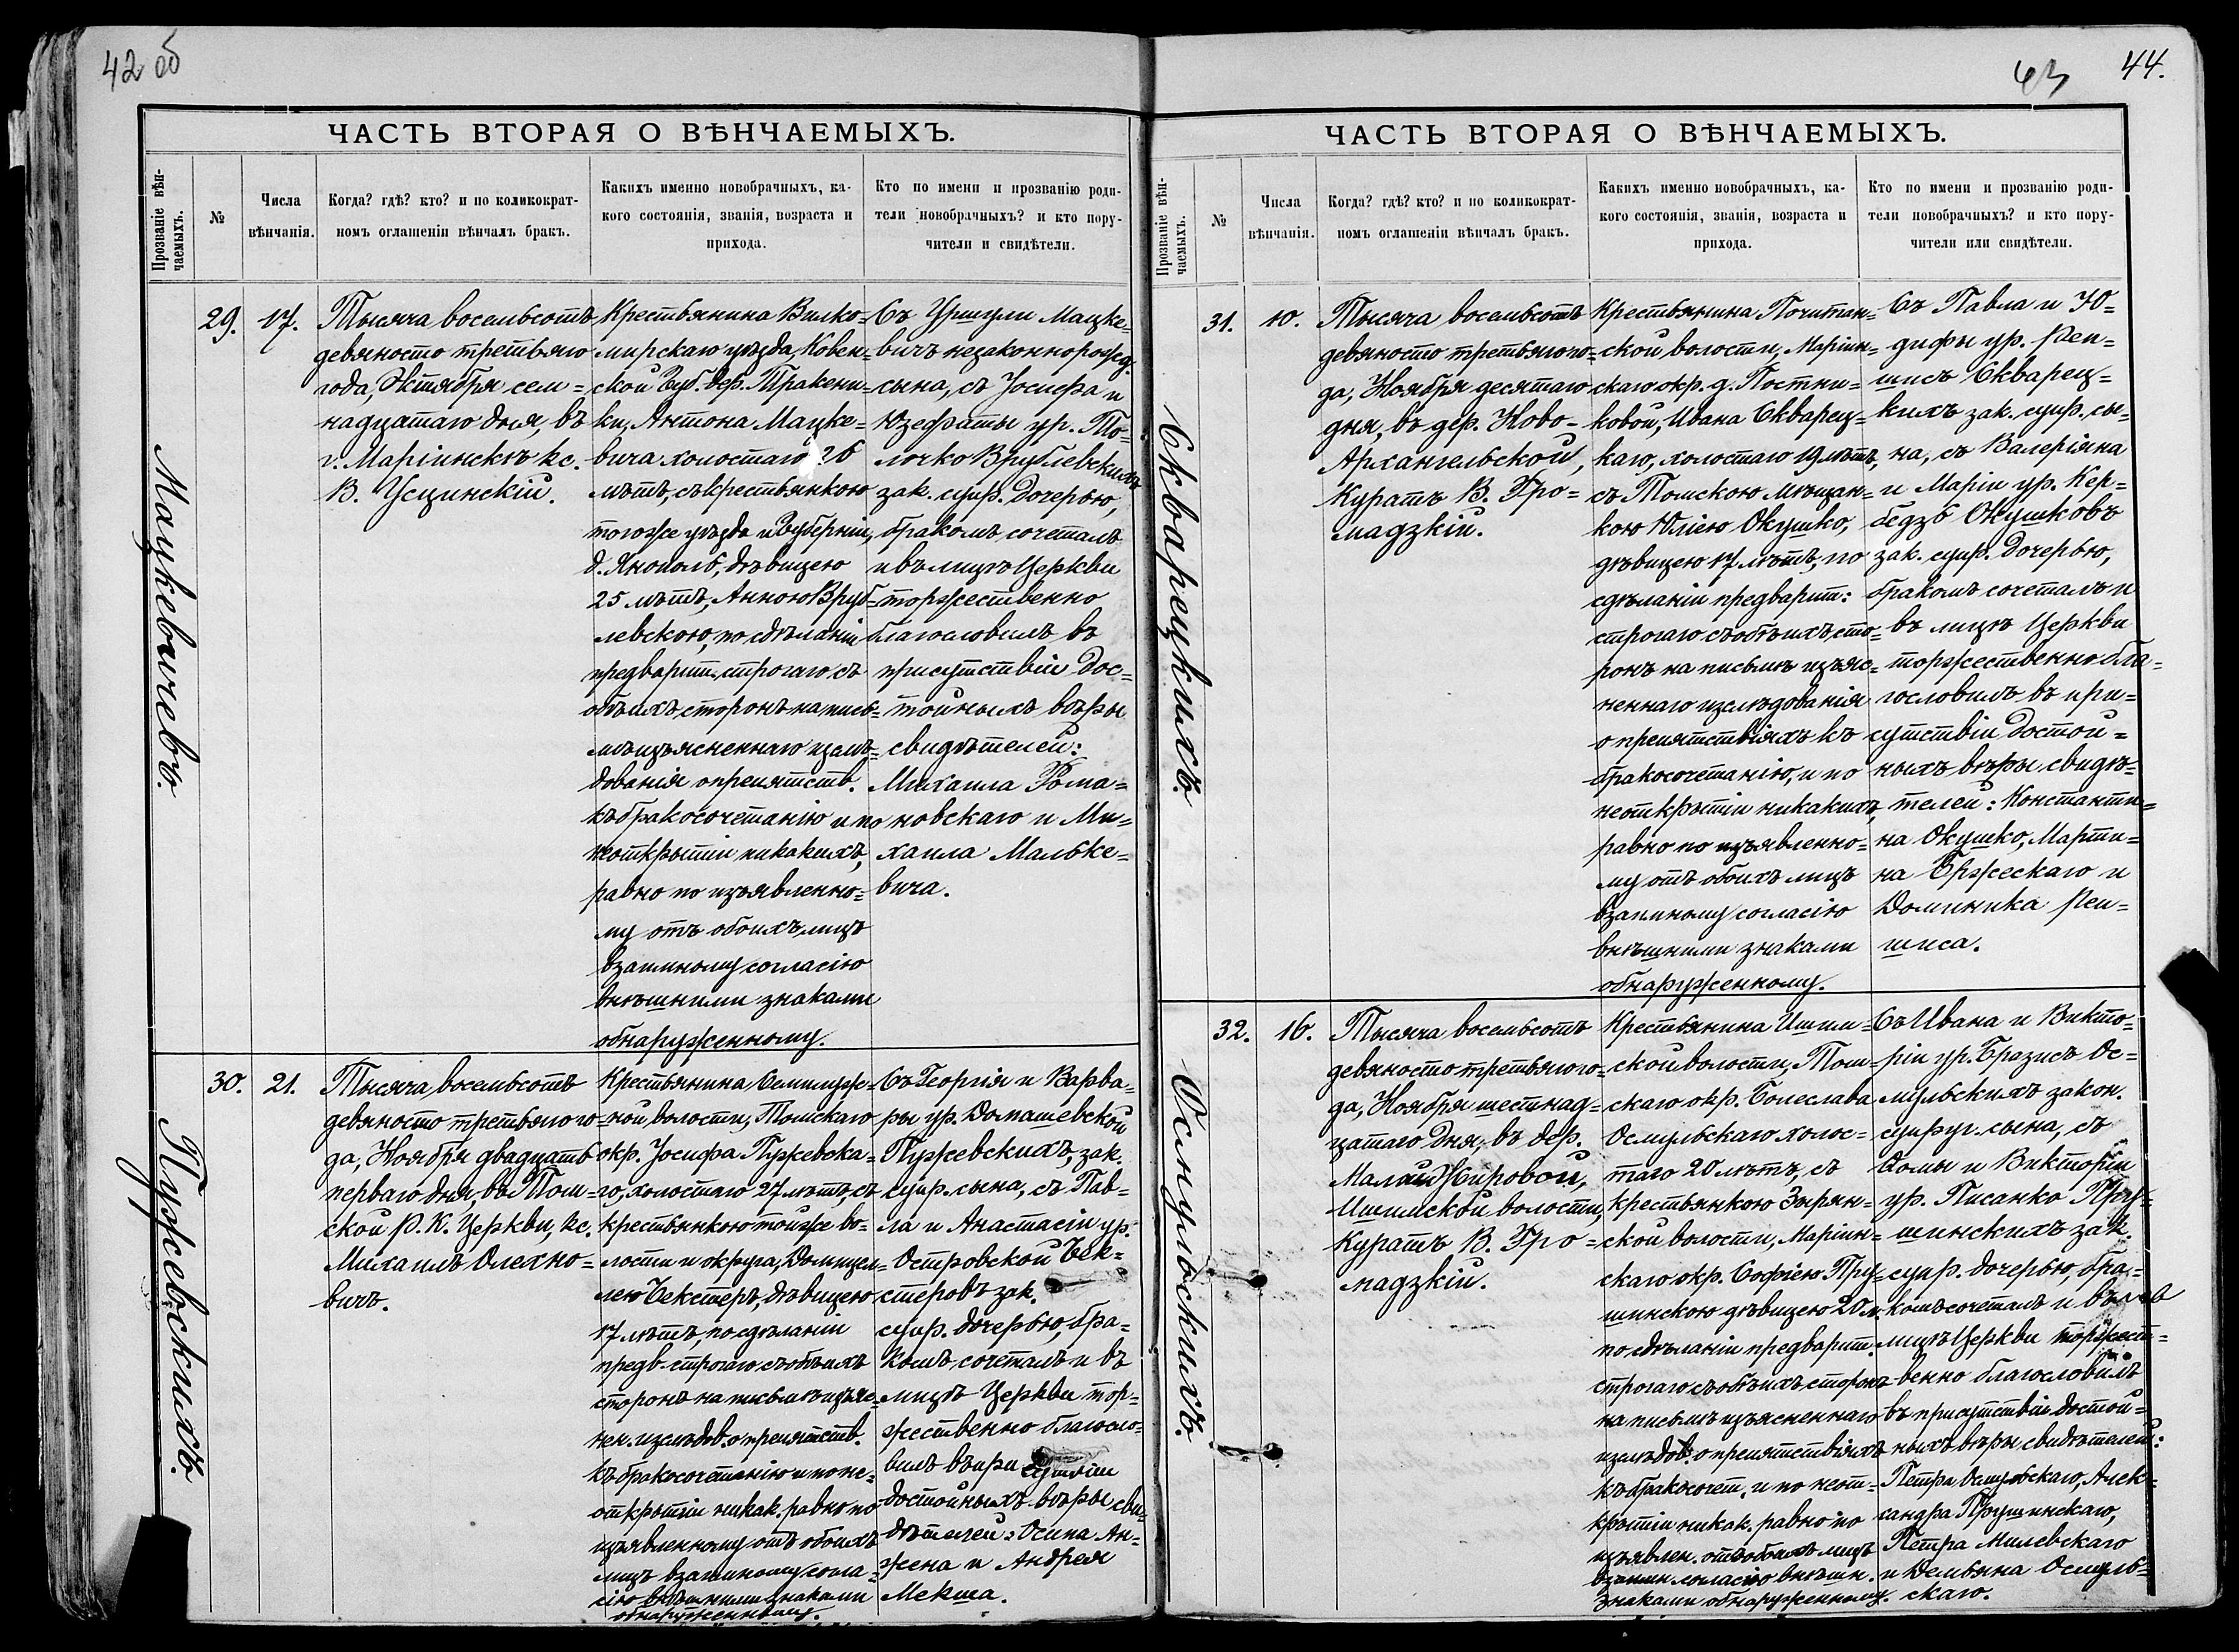 42 об
ЧАСТЬ ВТОРАЯ О ВѢНЧАЕМЫХЪ.
Прозваніе вѣн-
чаемыхъ.
№
Числа
вѣнчанія.
Когда? гдѣ? кто? и по коликократ-
номъ оглашеніи вѣнчалъ бракъ.
Какихъ именно новобрачныхъ, ка-
кого состоянія, званія, возраста и
прихода.
Кто по имени и прозванію роди-
тели новобрачныхъ? и кто пору-
чители и свидѣтели.
Мацкевичевъ.
29.
17.
Тысяча восемьсотъ
девяносто третьяго
года, Октября сем=
надцатаго дня, въ
г. Маріинскѣ кс.
В. Усцинскій.
Крестьянина Вилко=
мирскаго уѣзда, Ковен=
ской Губ. дер. Тракени=
ки, Антона Мацке=
вича холостаго 26
лѣтъ, съ крестьянкою
тогоже уѣзда и Губерніи,
д. Янополь, дѣвицею
25 лѣтъ, Анною Вруб=
левскою, по сдѣланіи
предварит. строгаго съ
обѣихъ сторонъ на пись=
мѣ изъясненнаго изслѣ=
дованія о препятств.
къ бракосочетанію и по
неоткрытіи никакихъ,
равно по изъявленно=
му отъ обоихъ лицъ
взаимному согласію
внѣшними знаками
обнаруженному.
Съ Уршули Мацке=
вичъ незаконнорожд.
сына, съ Іосифа и
Юзефаты ур. То=
лочко Врублевскихъ
зак. супр. дочерью,
бракомъ сочеталъ
и въ лицѣ Церкви
торжественно
благословилъ въ
присутствіи дос=
тойныхъ вѣры
свидѣтелей:
Михаила Рома=
новскаго и Ми=
хаила Мальке=
вича.
Пужевскихъ.
30.
21.
Тысяча восемьсотъ
девяносто третьяго го=
да, Ноября двадцать
перваго дня, въ Том=
ской Р. К. Церкви, кс.
Михаилъ Олехно=
вичъ.
Крестьянина Семилуж=
ной волости, Томскаго
окр. Іосифа Пужевска=
го, холостаго 27 лѣтъ, съ
крестьянкою тойже во=
лости и округа, Доницел=
лею Бекстеръ, дѣвицею
17 лѣтъ, по сдѣланіи
предв. строгаго съ обѣихъ
сторонъ на письмѣ изъяс=
нен. изслѣдов. о препятств.
къ бракосочетанію и по не=
открытіи никак. равно по
изъявленному отъ обоихъ
лицъ взаимному согла=
сію внѣшними знаками
обнаруженному.
Съ Георгія и Варва=
ры ур. Домашевской
Пужевскихъ, зак.
супр. сына, съ Пав=
ла и Анастасіи ур.
Островской Бек=
стеровъ зак.
супр. дочерью, бра=
комъ сочеталъ и въ
лицѣ Церкви тор=
жественно благосло=
вилъ въ при сутствіи
достойныхъ вѣры сви=
дѣтелей: Осипа Ан=
жена и Андрея
Мекша.
43
44.
ЧАСТЬ ВТОРАЯ О ВѢНЧАЕМЫХЪ.
Прозваніе вѣн-
чаемыхъ.
№
Числа
вѣнчанія.
Когда? гдѣ? кто? и по коликократ-
номъ оглашеніи вѣнчалъ бракъ.
Какихъ именно новобрачныхъ, ка-
кого состоянія, званія, возраста и
прихода.
Кто по имени и прозванію роди-
тели новобрачныхъ? и кто пору-
чители или свидѣтели.
Скварецкихъ.
31.
10.
Тысяча восемьсотъ
девяносто третьяго го=
да, Ноября десятаго
дня, въ дер. Ново-
Архангельской,
Куратъ В. Гро=
мадзкій.
Крестьянина Почитан=
ской волости, Маріин=
скаго окр. д. Постни=
ковой, Ивана Скварец=
каго, холостаго 19 лѣтъ,
съ Томскою мѣщан=
кою Юліею Окушко,
дѣвицею 17 лѣтъ, по
сдѣланіи предварит:
строгаго съ обѣихъ сто=
ронъ на письмѣ изъяс=
неннаго изслѣдованія
о препятствіяхъ къ
бракосочетанію, и по
неоткрытіи никакихъ,
равно по изъявленно=
му отъ обоихъ лицъ
взаимному согласію
внѣшними знаками
обнаруженному.
Съ Павла и Ю=
дифы ур. Реи=
шисъ Скварец=
кихъ зак. супр. сы=
на, съ Валеріяна
и Маріи ур. Кер=
бедзь Окушковъ
зак. супр. дочерью,
бракомъ сочеталъ и
въ лицѣ Церкви
торжественно бла=
гословилъ въ при=
сутствіи достой=
ныхъ вѣры свидѣ=
телей: Константи=
на Окушко, Марти=
на Бржескаго и
Доминика Реи=
шиса.
Осмульскихъ.
32.
16.
Тысяча восемьсотъ
девяносто третьяго го=
да, Ноября шестнад=
цатаго дня, въ дер.
Малой Жировой,
Ишимской волости,
Куратъ В. Гро=
мадзкій.
Крестьянина Ишим=
ской волости, Том=
скаго окр. Болеслава
Осмульскаго холос=
таго 20 лѣтъ, съ
крестьянкою Зырян=
ской волости, Маріин=
скаго окр. Софіею Пру=
шинскою дѣвицею 20 л.
по сдѣланіи предварит.
строгаго съ обѣихъ сторонъ
на письмѣ изъясненнаго
изслѣдов. о препятствіяхъ
къ бракосочет. и по неот=
крытіи никак. равно по
изъявлен. отъ обоихъ лицъ
взаимн. согласію внѣшн.
знаками обнаруженному.
Съ Ивана и Викто=
ріи ур. Бразисъ Ос=
мульскихъ закон.
супруг. сына, съ
Ѳомы и Викторіи
ур. Писанко Пру=
шинскихъ зак.
супр. дочерью, бра=
комъ сочеталъ и въ
лицѣ Церкви торжест=
венно благословилъ
въ присутствіи достой=
ныхъ вѣры свидѣтелей:
Петра Осмульскаго, Алек=
сандра Прушинскаго,
Петра Милевскаго
и Демьяна Осмуль=
скаго.